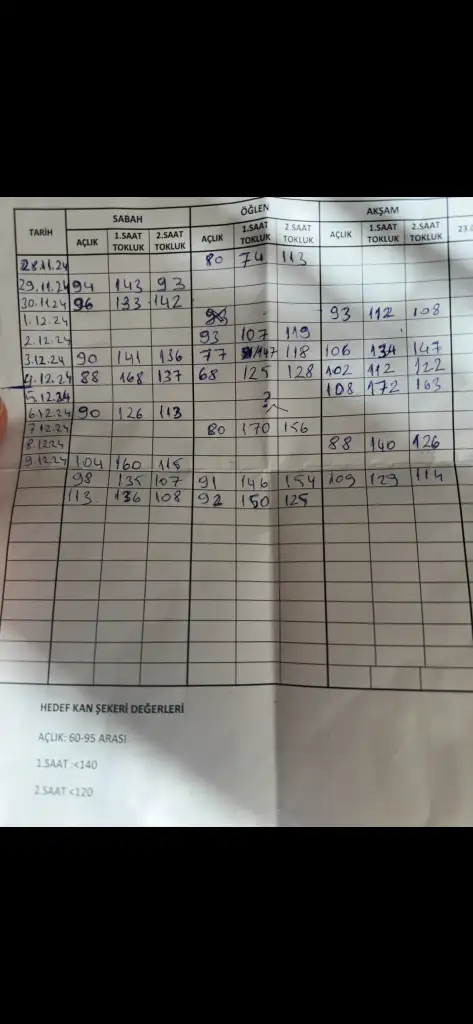 SABAH ÖĞLEN AKŞAM
TARİH AÇLIK 1.SAAT TOKLUK 2.SAAT TOKLUK AÇLIK 1.SAAT TOKLUK 2.SAAT TOKLUK AÇLIK 1.SAAT TOKLUK 2.SAAT TOKLUK
28.11.24 80 74 113
29.11.24 94 143 93
30.11.24 96 133 142
1.12.24 93 112 108
2.12.24 93 107 119
3.12.24 90 141 136 77 147 118 106 134 147
4.12.24 88 168 137 68 125 128 102 112 122
5.12.24 108 172 163
6.12.24 90 126 113 ?
7.12.24 80 170 156
8.12.24 88 140 126
9.12.24 104 160 115
98 135 107 91 146 154 109 129 114
113 136 108 92 150 125
HEDEF KAN ŞEKERİ DEĞERLERİ
AÇLIK: 60-95 ARASI
1.SAAT :<140
2.SAAT <120